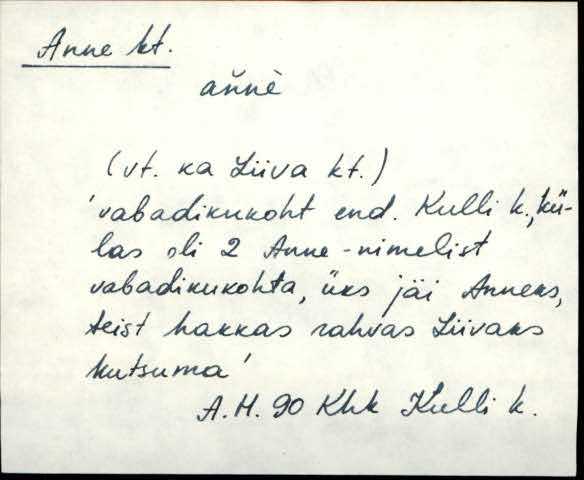 Anne kt.
ańnè
(vt. ka Liiva kt.)
'vabadikukoht end. Kulli k., kü-
las oli 2 Anne-nimelist
vabadikukohta, üks jäi Anneks,
teist hakkas rahvas Liivaks
kutsuma'
A.H. 90 Khk Kulli k.